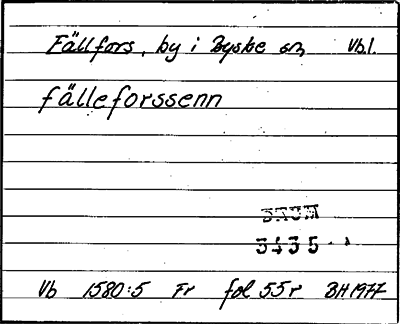 Fällfors, by i Byske sn Vb.l.
fälleforssenn
DAUM
3435
Vb 1580:5 Fr fol 55 r BH 1977